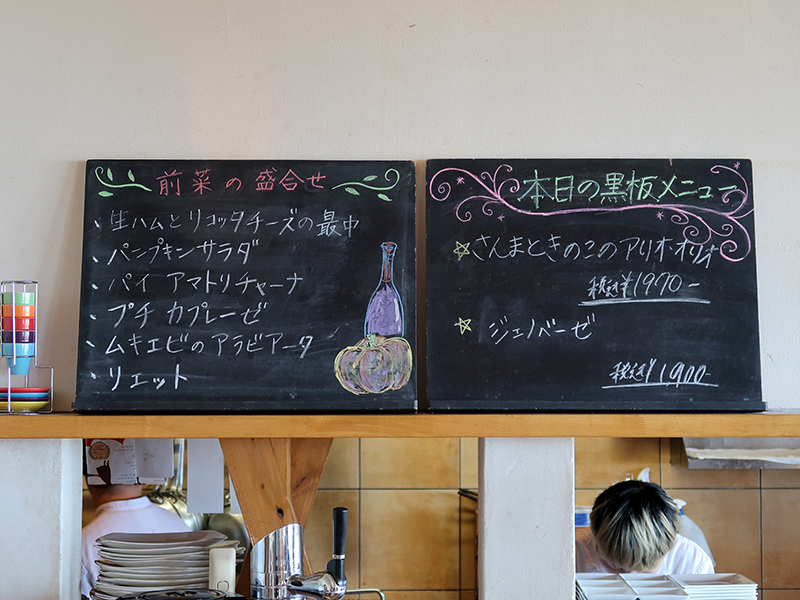 前菜の盛合せ
、生ハムとリコッタチーズの最中
、パンプキンサラダ
、パイ アマトリチャーナ
、プチ カプレーゼ
、ムキエビのアラビアータ
、リエット
本日の黒板メニュー
☆さんまときのこのアリオオリオ
税込¥1970-
☆ジェノベーゼ
税込¥1900-